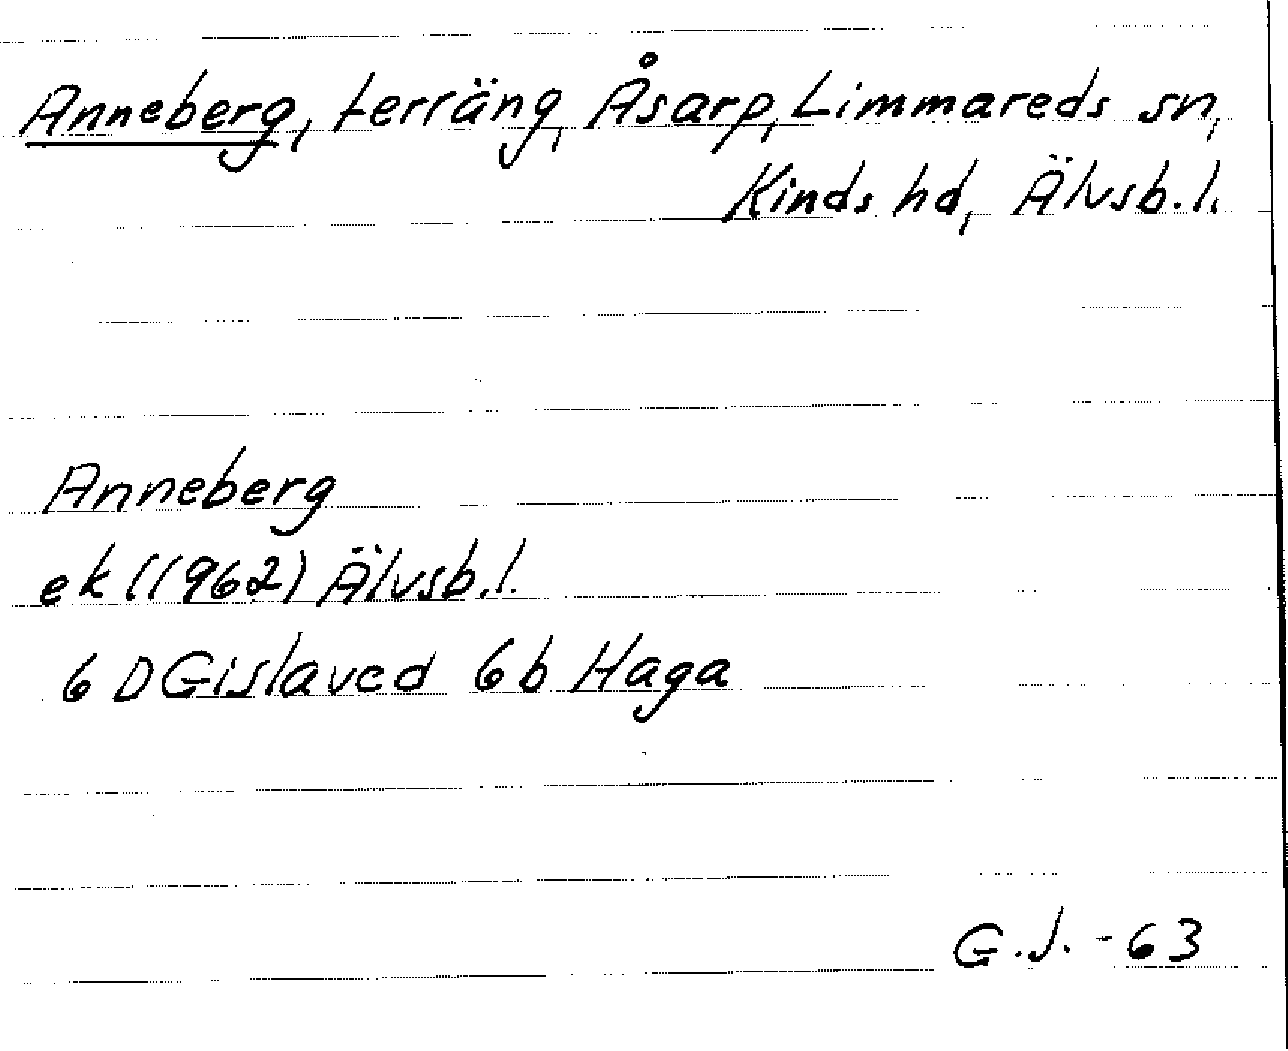 Anneberg, terräng, Åsarp, Limmareds sn,
Kinds hd, Älvsb.l.
Anneberg
ek (1962) Älvsb.l.
6 D Gislaved 6b Haga
G.J. -63